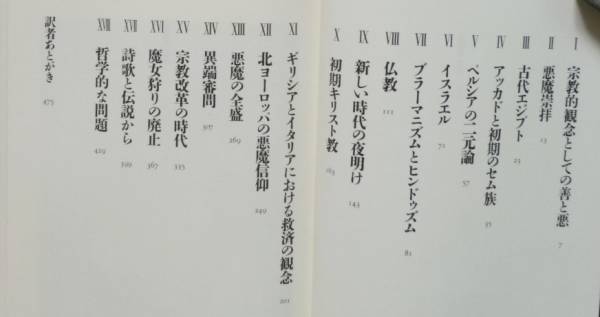 I 宗教的観念としての善と悪 7
II 悪魔崇拝 13
III 古代エジプト 23
IV アッカドと初期のセム族 35
V ペルシアの二元論 57
VI イスラエル 71
VII ブラーマニズムとヒンドゥズム 81
VIII 仏教 111
IX 新しい時代の夜明け 143
X 初期キリスト教 163
XI ギリシアとイタリアにおける救済の観念 201
XII 北ヨーロッパの悪魔信仰 249
XIII 悪魔の全盛 269
XIV 異端審問 307
XV 宗教改革の時代 335
XVI 魔女狩りの廃止 367
XVII 詩歌と伝説から 399
XVIII 哲学的な問題 429
訳者あとがき 475